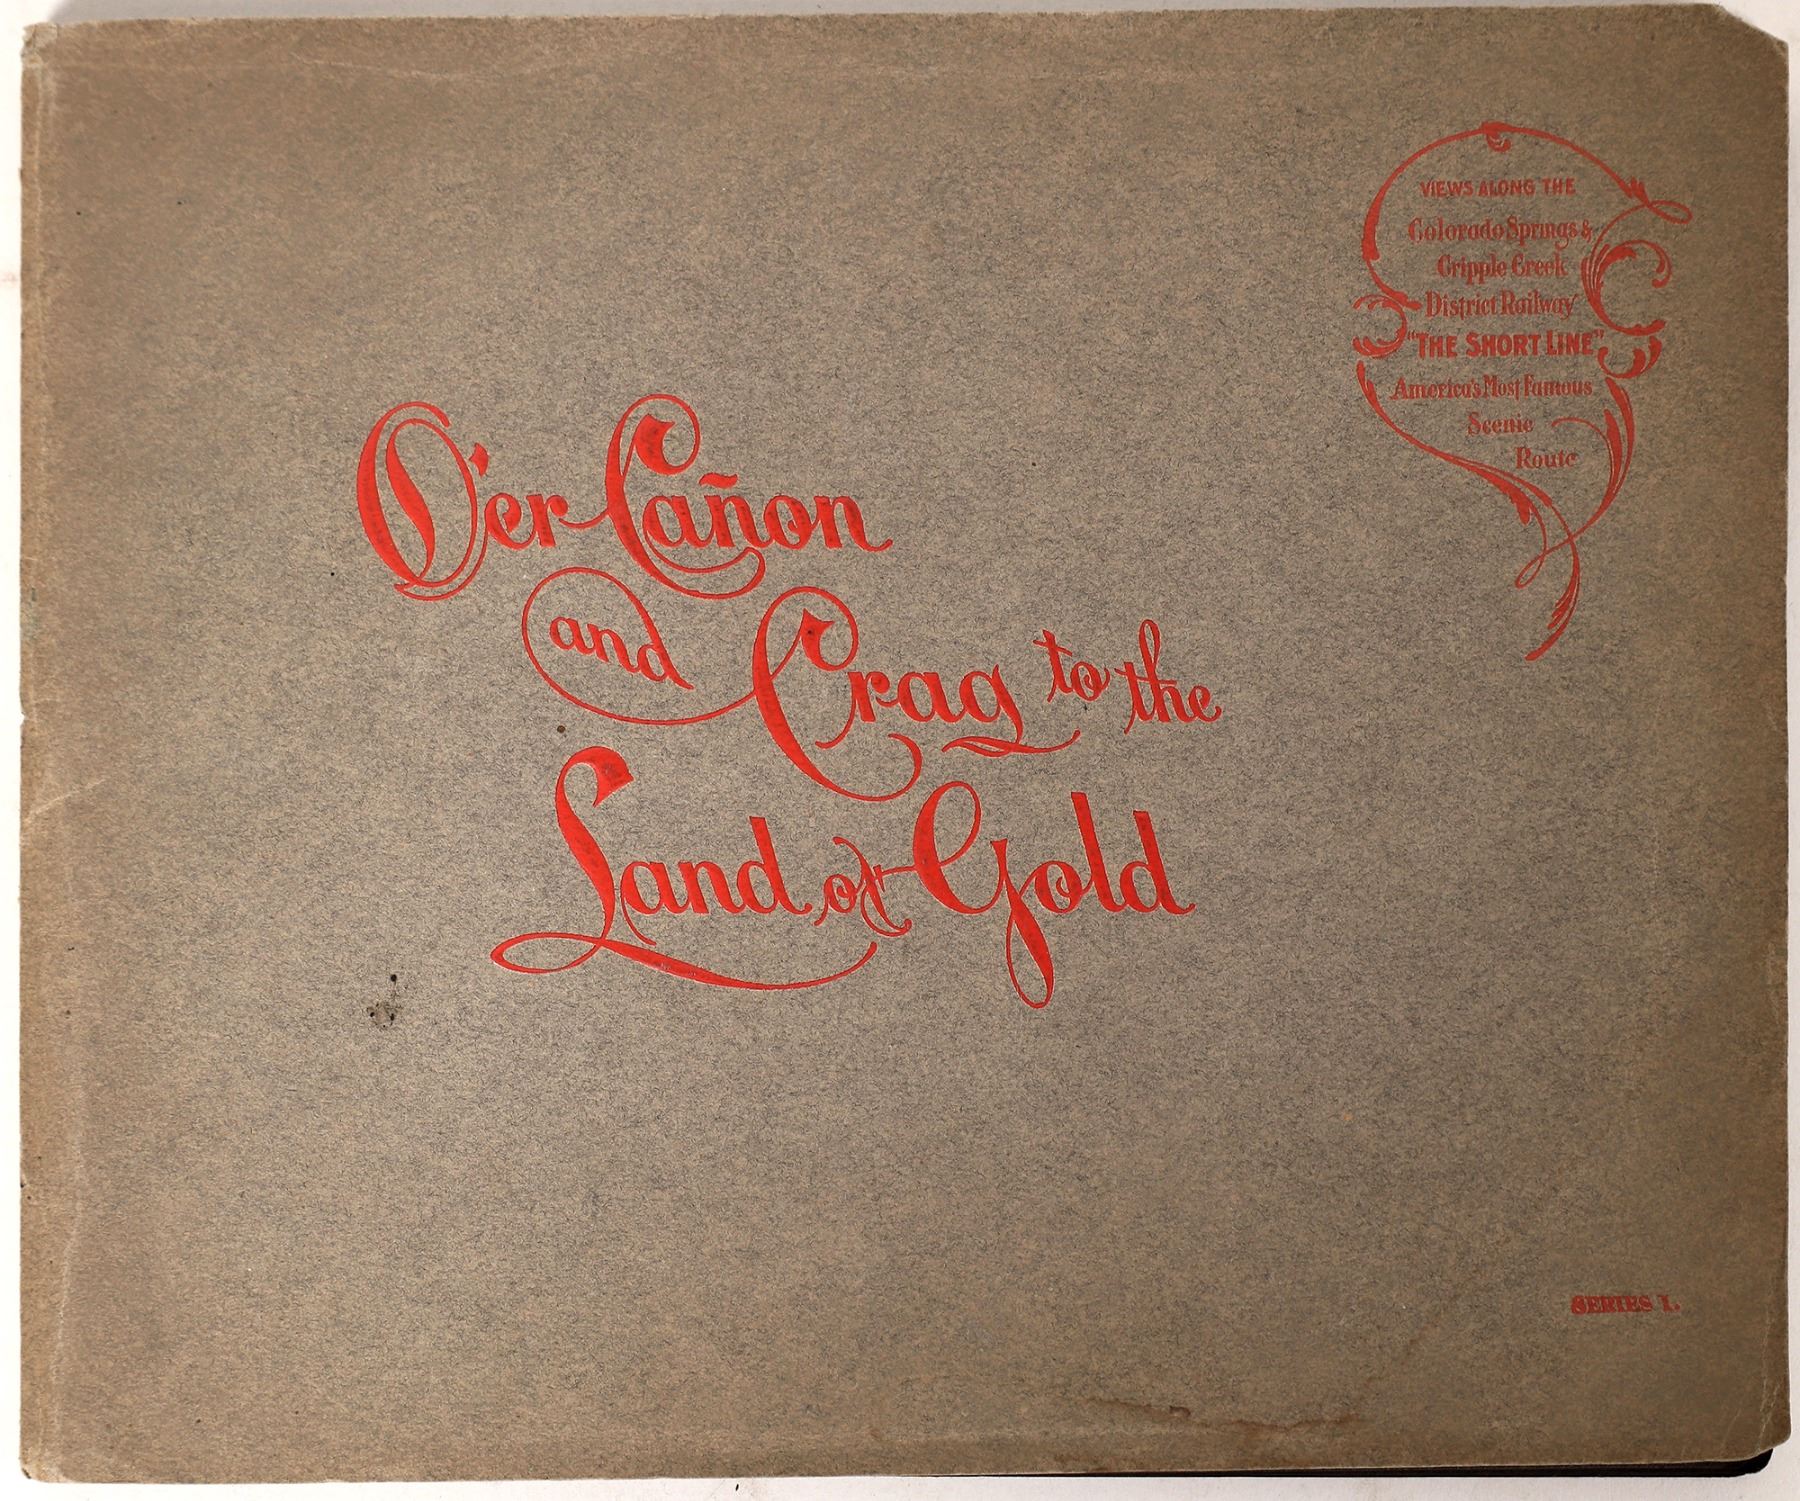 VIEWS ALONG THE
Colorado Springs &
Cripple Creek
District Railway
"THE SHORT LINE"
America's Most Famous
Scenic
Route
O'er Cañon
and Crag to the
Land of Gold
SERIES 1.